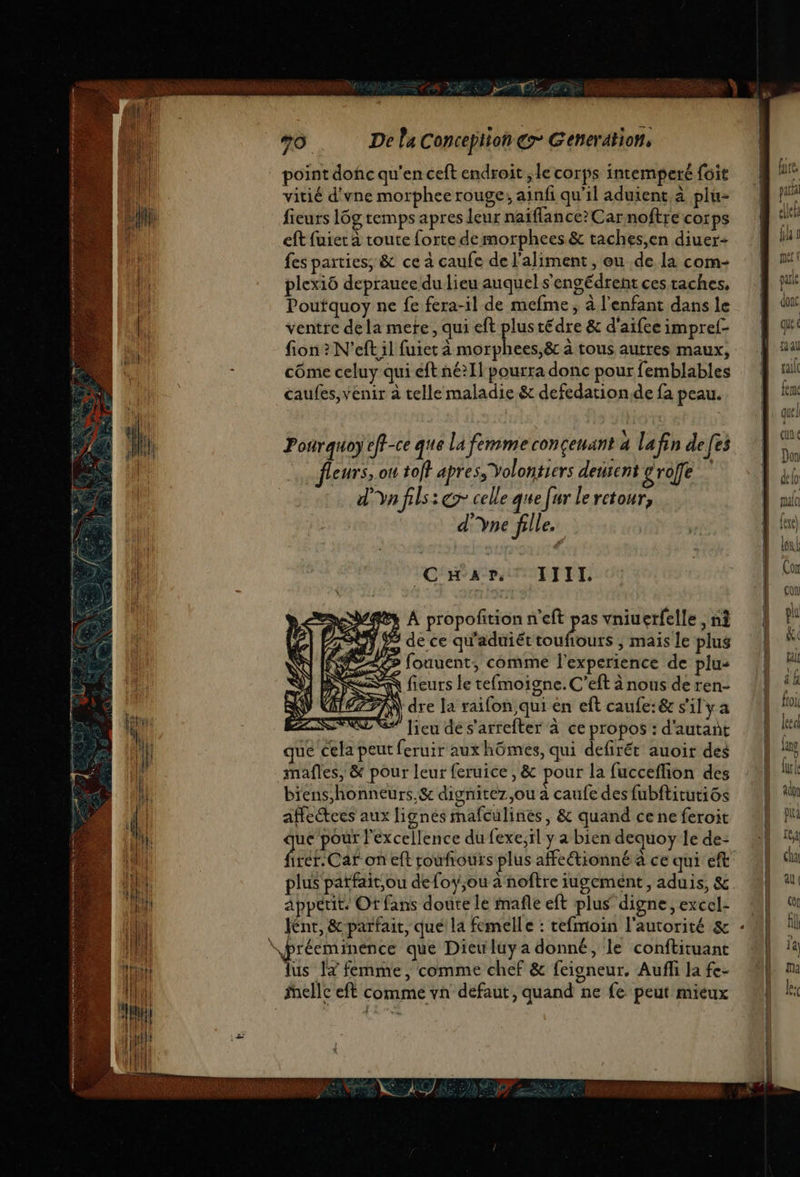 70 De la Conception & Generation,
point donc qu'en cest endroit, le corps intemperé soit
vitié d'vne morphee rouge, ainsi qu'il aduient à plu-
sieurs lõg temps apres leur naissance? Car nostre corps
est suiet à toute sorte de morphees & taches, en diuer-
ses parties, & ce à cause de l'aliment, ou de la com-
plexiõ deprauee du lieu auquel s'engẽdrent ces taches.
Pourquoy ne se fera-il de mesme, à l'enfant dans le
ventre de la mere, qui est plus tẽdre & d'aisee impres-
sion? N'est il suiet à morphees, & à tous autres maux,
cõme celuy qui est né? Il pourra donc pour semblables
causes, venir à telle maladie & defedation de sa peau.
Pourquoy est-ce que la femme conçeuant à la fin de ses
fleurs, ou tost apres, volontiers deuient grosse
d'vn fils: & celle que sur le retour,
d'vne fille.
CHAP. IIII.
A proposition n'est pas vniuerselle, ni
de ce qu'aduiẽt tousiours, mais le plus
souuent, comme l'experience de plu-
sieurs le tesmoigne. C'est à nous de ren-
dre la raison, qui en est cause: & s'il y a
lieu de s'arrester à ce propos: d'autant
que cela peut seruir aux hõmes, qui desirẽt auoir des
masles, & pour leur seruice, & pour la succession des
biens, honneurs, & dignitez, ou à cause des substitutiõs
affectees aux lignes masculines, & quand ce ne seroit
que pour l'excellence du sexe, il y a bien dequoy le de-
sirer. Car on est tousiours plus affectionné à ce qui est
plus parfait, ou de soy, ou à nostre iugement, aduis, &
appetit. Or sans doute le masle est plus digne, excel-
lẽnt, & parfait, que la femelle: tesmoin l'autorité &
préeminence que Dieu luy a donné, le constituant
sus la femme, comme chef & seigneur. Aussi la fe-
melle est comme vn defaut, quand ne se peut mieux